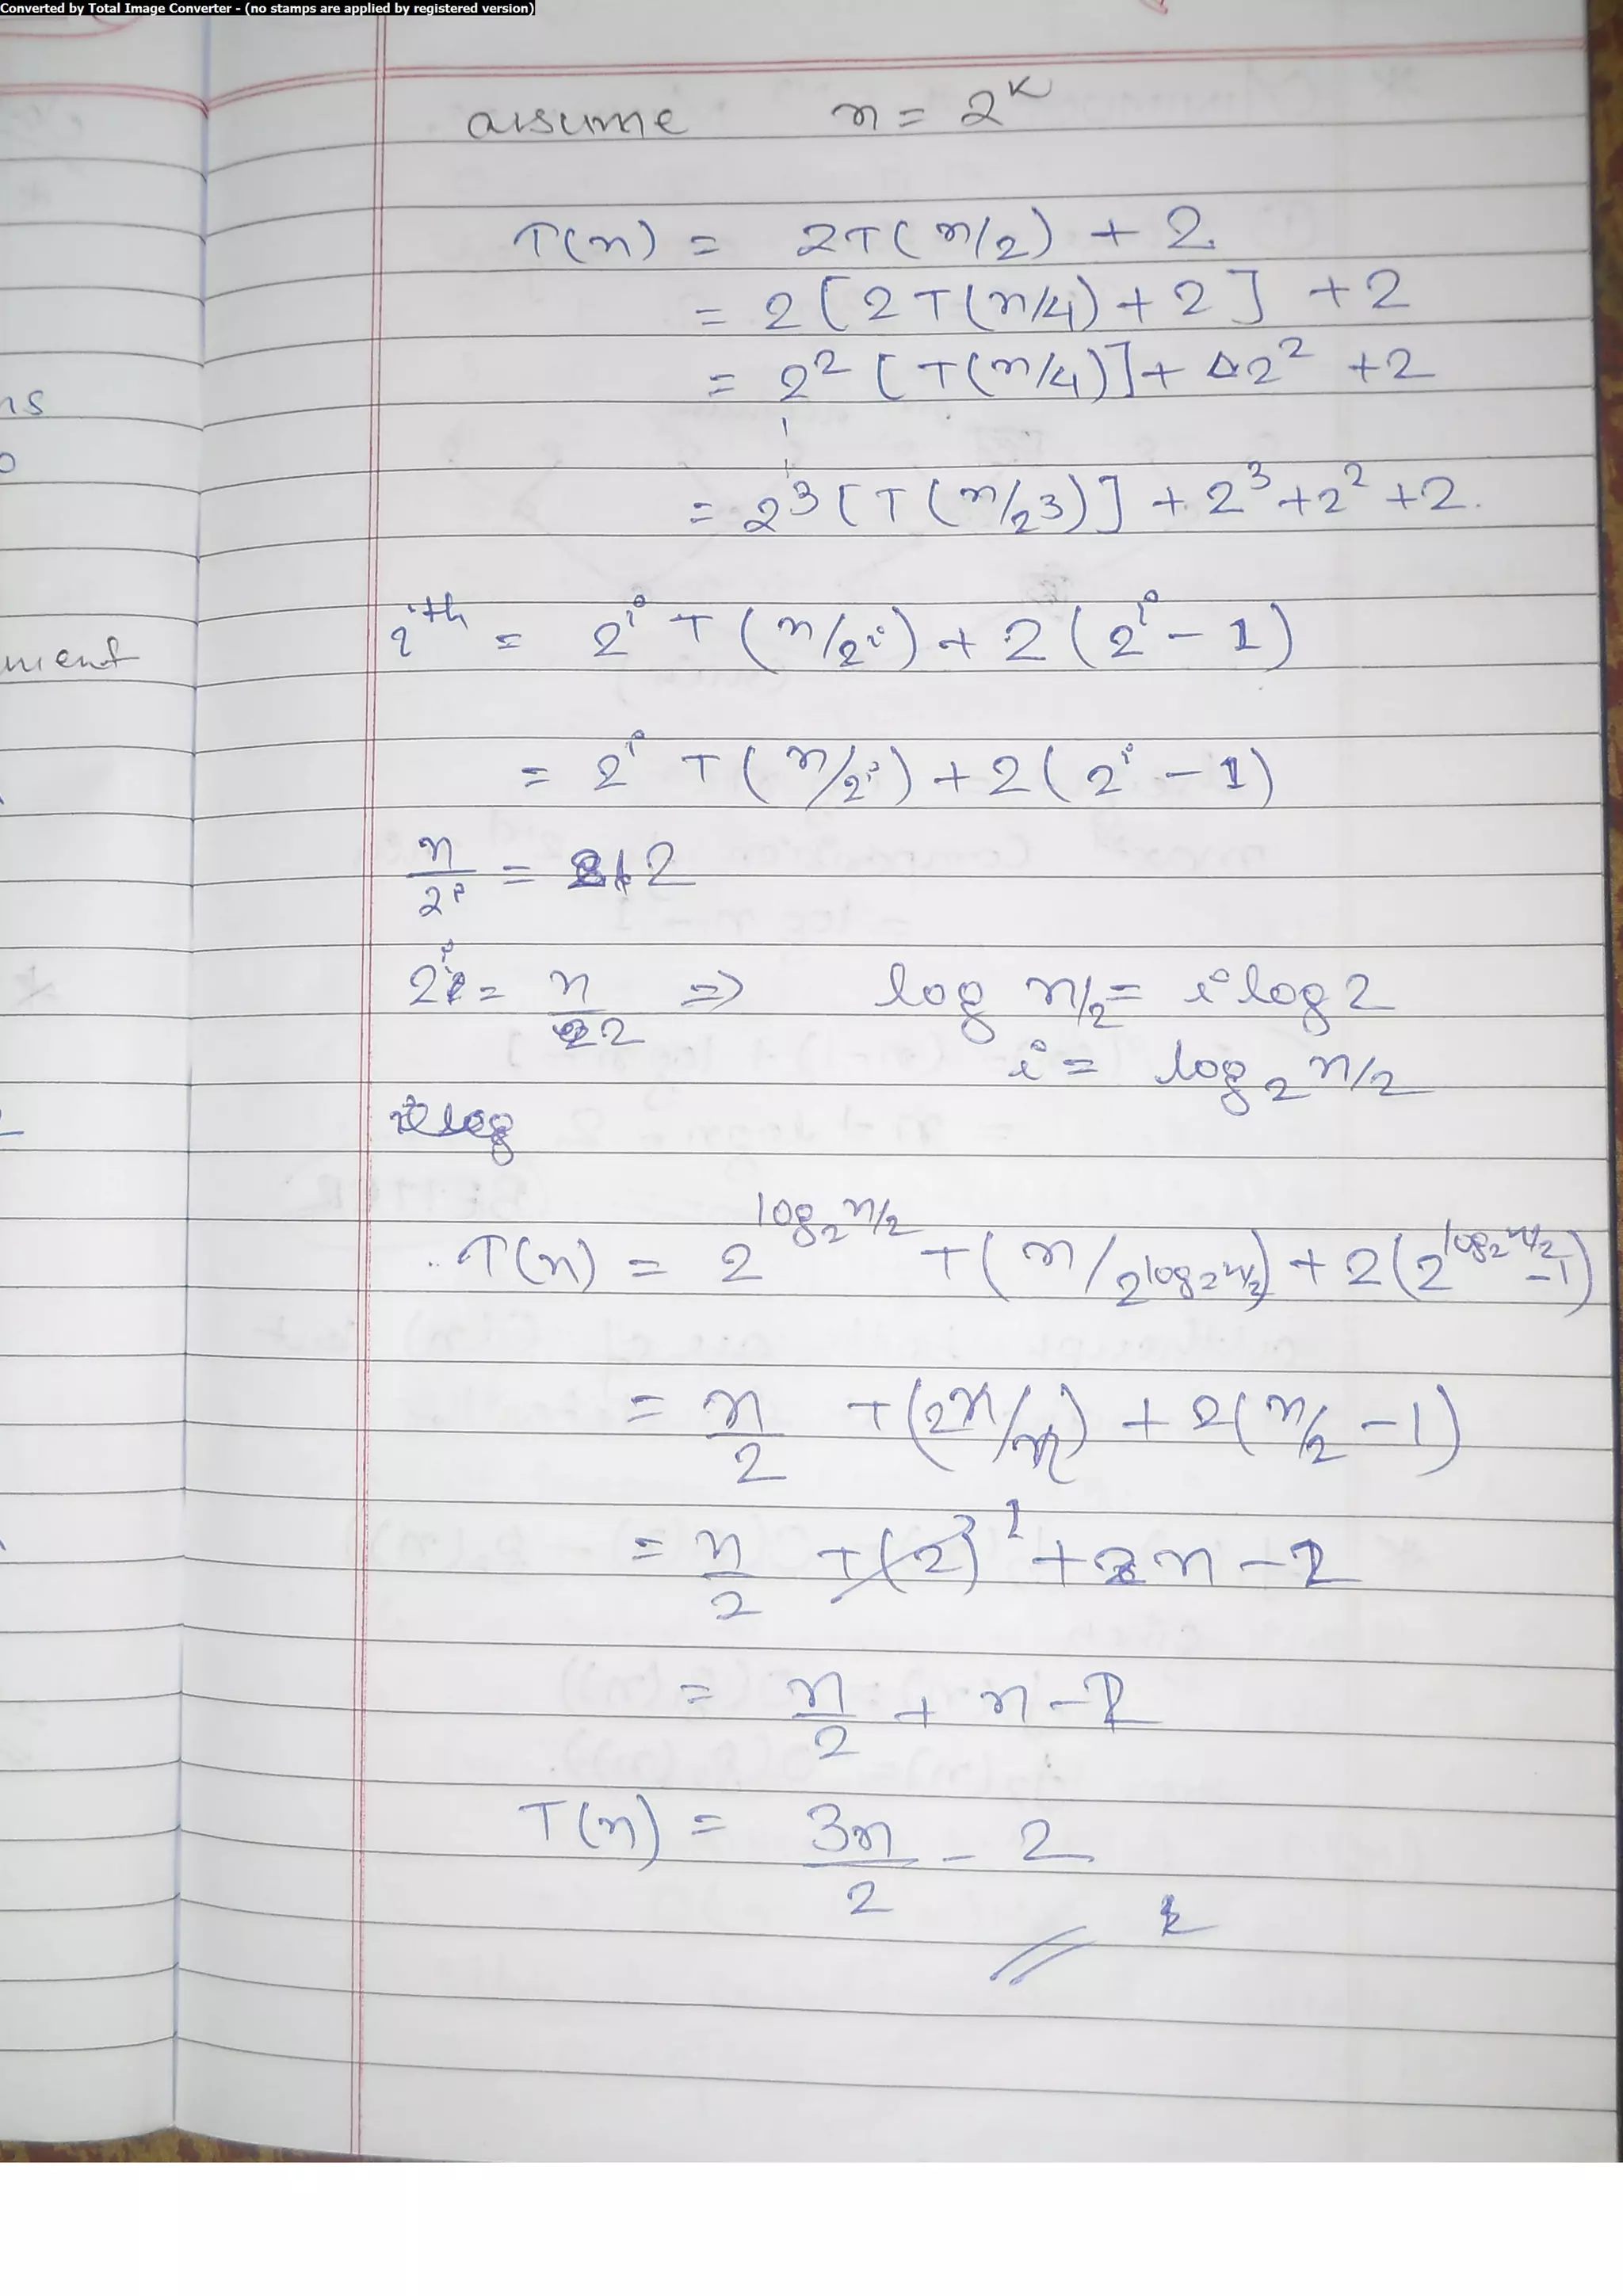 Converted by Total Image Converter - (no stamps are applied by registered version)
assume n = 2^k
T(n) = 2T(n/2) + 2
= 2[2T(n/4) + 2] + 2
= 2² [T(n/4)] + 2² + 2
= 2³ [T(n/2³)] + 2³ + 2² + 2.
ns
ment
i^th = 2^i T(n/2^i) + 2(2^i - 1)
= 2^i T(n/2^i) + 2(2^i - 1)
n/2^i = 2
2^i = n/2 => log n/2 = i log 2
i = log₂ n/2
T(n) = 2^(log₂ n/2) T(n/2^(log₂ n/2)) + 2(2^(log₂ n/2) - 1)
= n/2 T(2n/n) + 2(n/2 - 1)
= n/2 T(2)^1 + n - 2
= n/2 + n - 2
T(n) = 3n/2 - 2